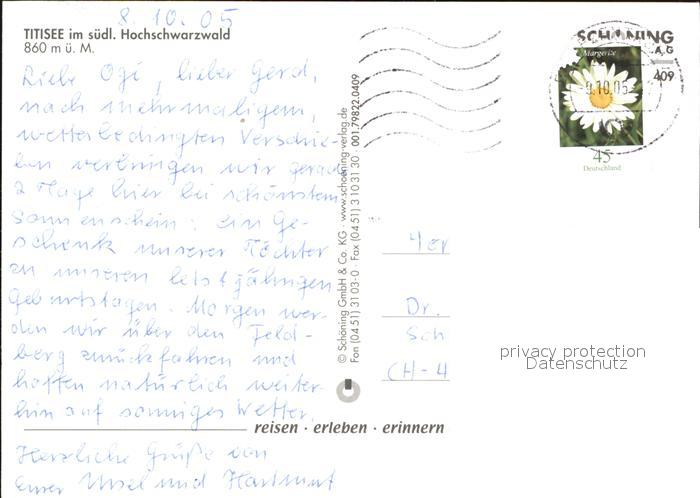 8.10.05
TITISEE im südl. Hochschwarzwald
860 m ü. M.
Liebe Ogi, lieber Gerd,
nach mehrmaligem,
wetterbedingten Verschie-
ben verbringen wir gerade
2 Tage hier bei schönstem
Sonnenschein: ein Ge-
schenk unserer Töchter
zu unseren letztjährigen
Geburtstagen. Morgen wer-
den wir über den Feld-
berg zurückfahren und
hoffen natürlich weiter-
hin auf sonniges Wetter.
Herzliche Grüße von
Eurer Ursel und Hartmut
reisen · erleben · erinnern
© Schöning GmbH & Co. KG · www.schoening-verlag.de
Fon (04 51) 31 03-0 · Fax (04 51) 3 10 31 30 · 001.79822.0409
SCHÖNING
409
Margerite
10.05
45
Deutschland
Dr.
Sch
CH-4
privacy protection
Datenschutz